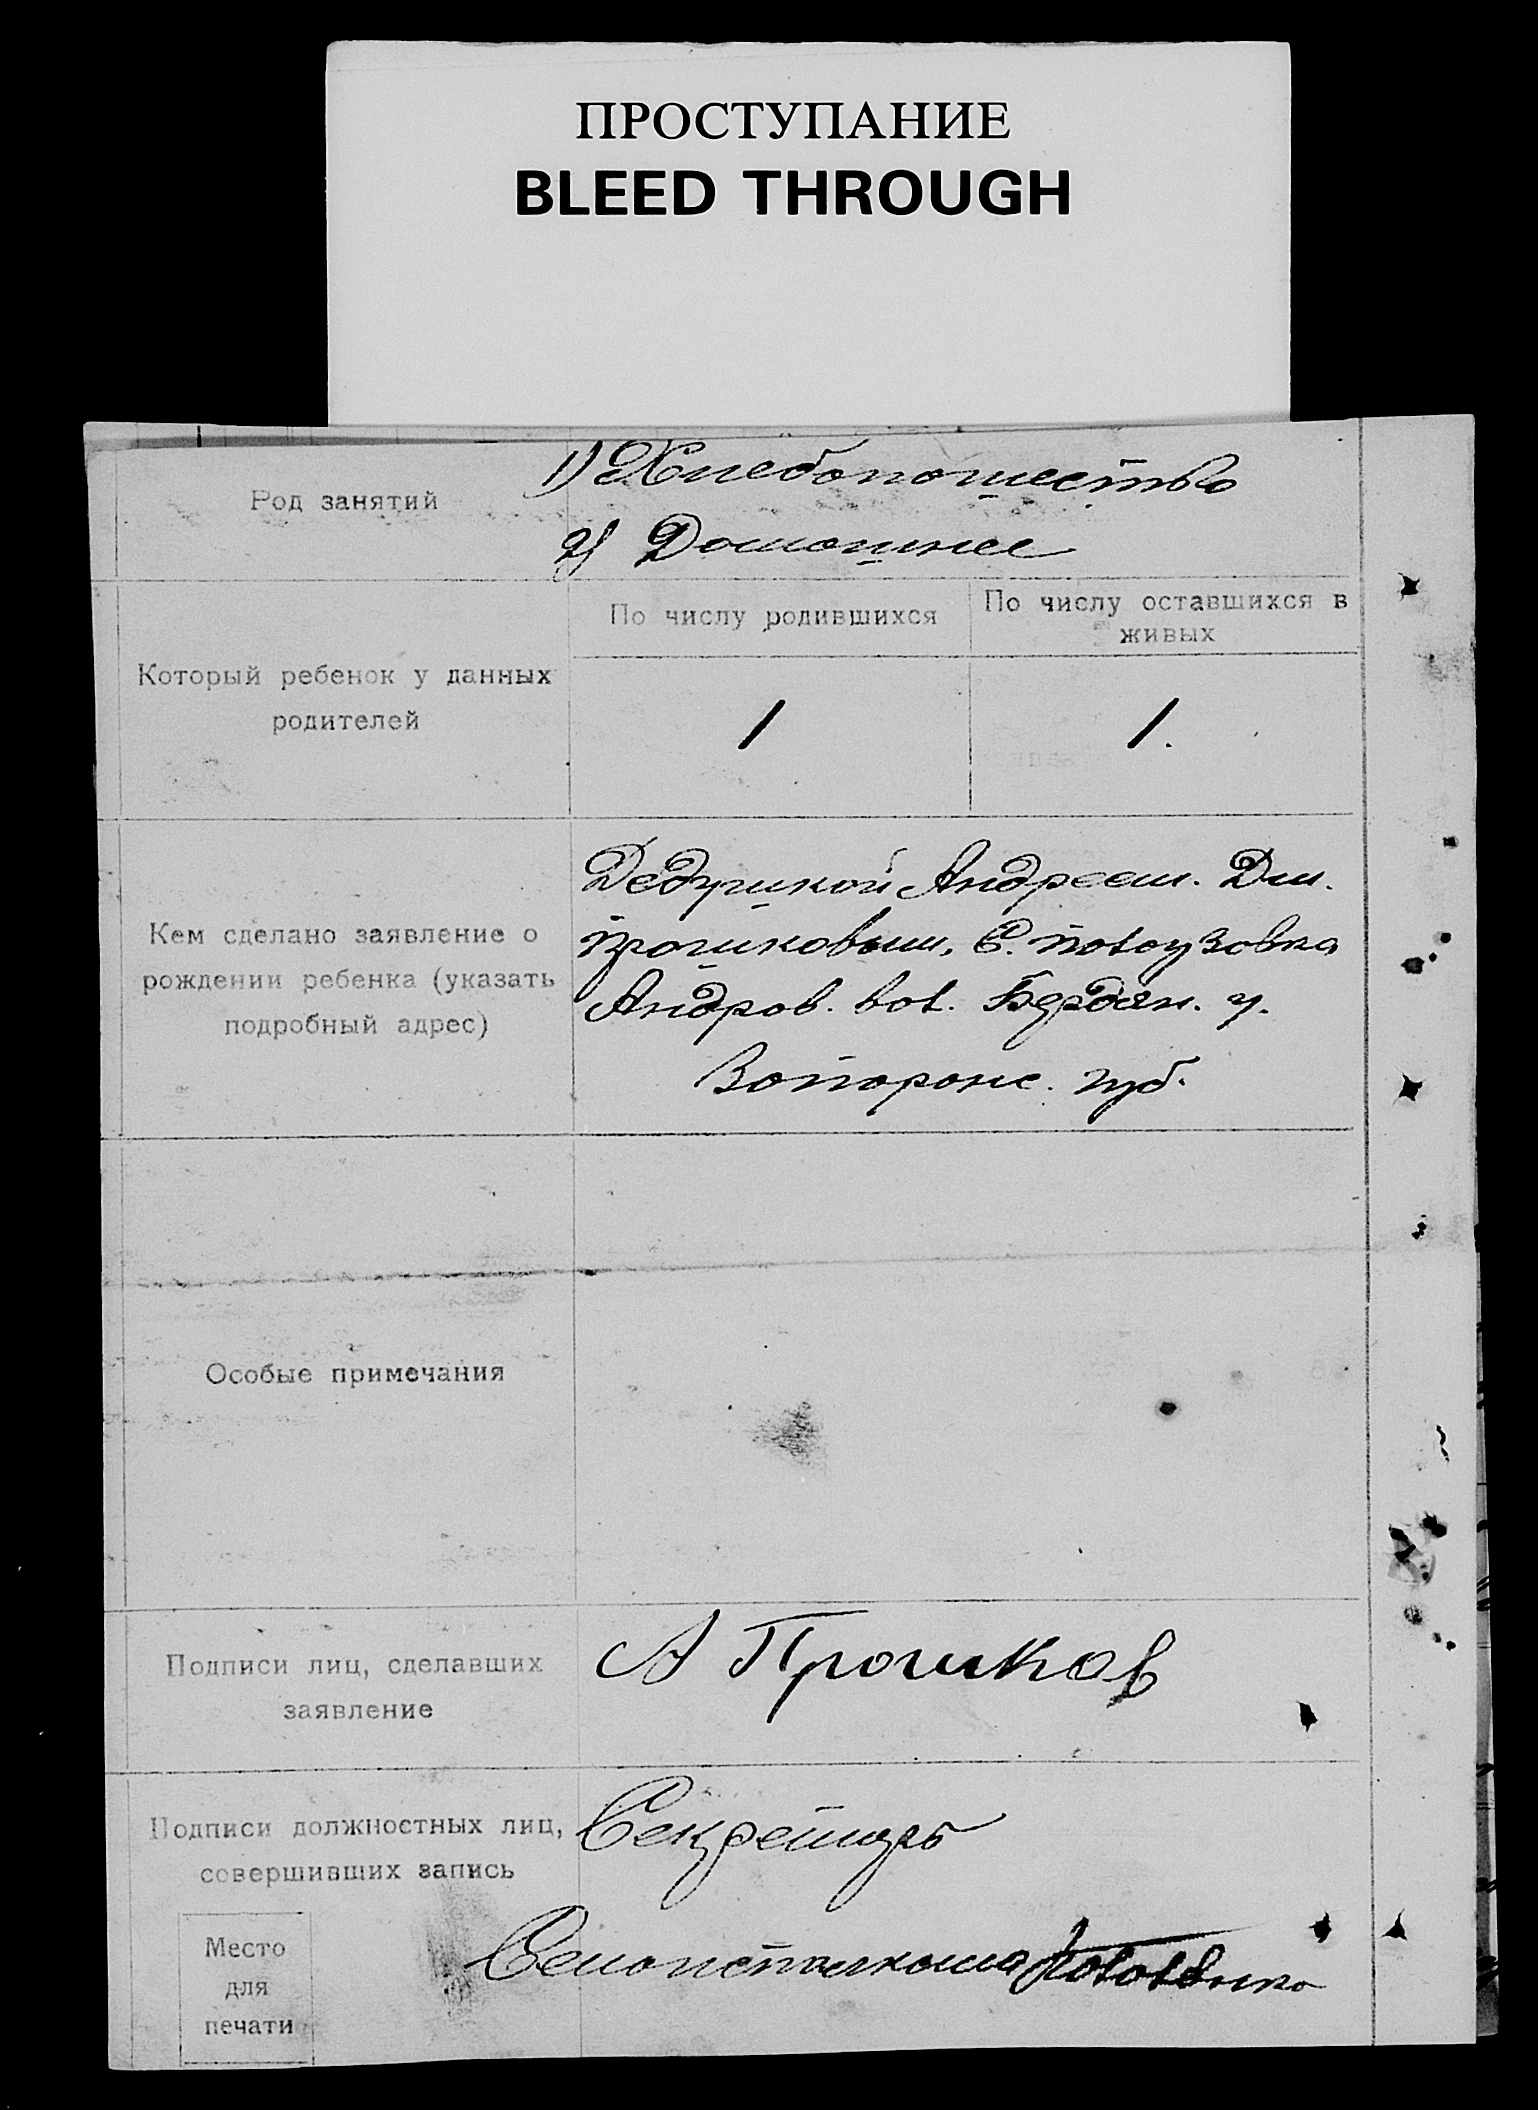 ПРОСТУПАНИЕ
BLEED THROUGH
Род занятий
1) Хлебопашество
2) Домашнее
Который ребенок у данных
родителей
По числу родившихся
По числу оставшихся в
живых
1
1.
Кем сделано заявление о
рождении ребенка (указать
подробный адрес)
Дедушкой Андреем. Дм.
Прошковым, С.
Андров. вол. Бердян. у.
Запорожс. губ.
Особые примечания
Подписи лиц, сделавших
заявление
А Прошков
Подписи должностных лиц,
совершивших запись
Секретарь
Место
для
печати